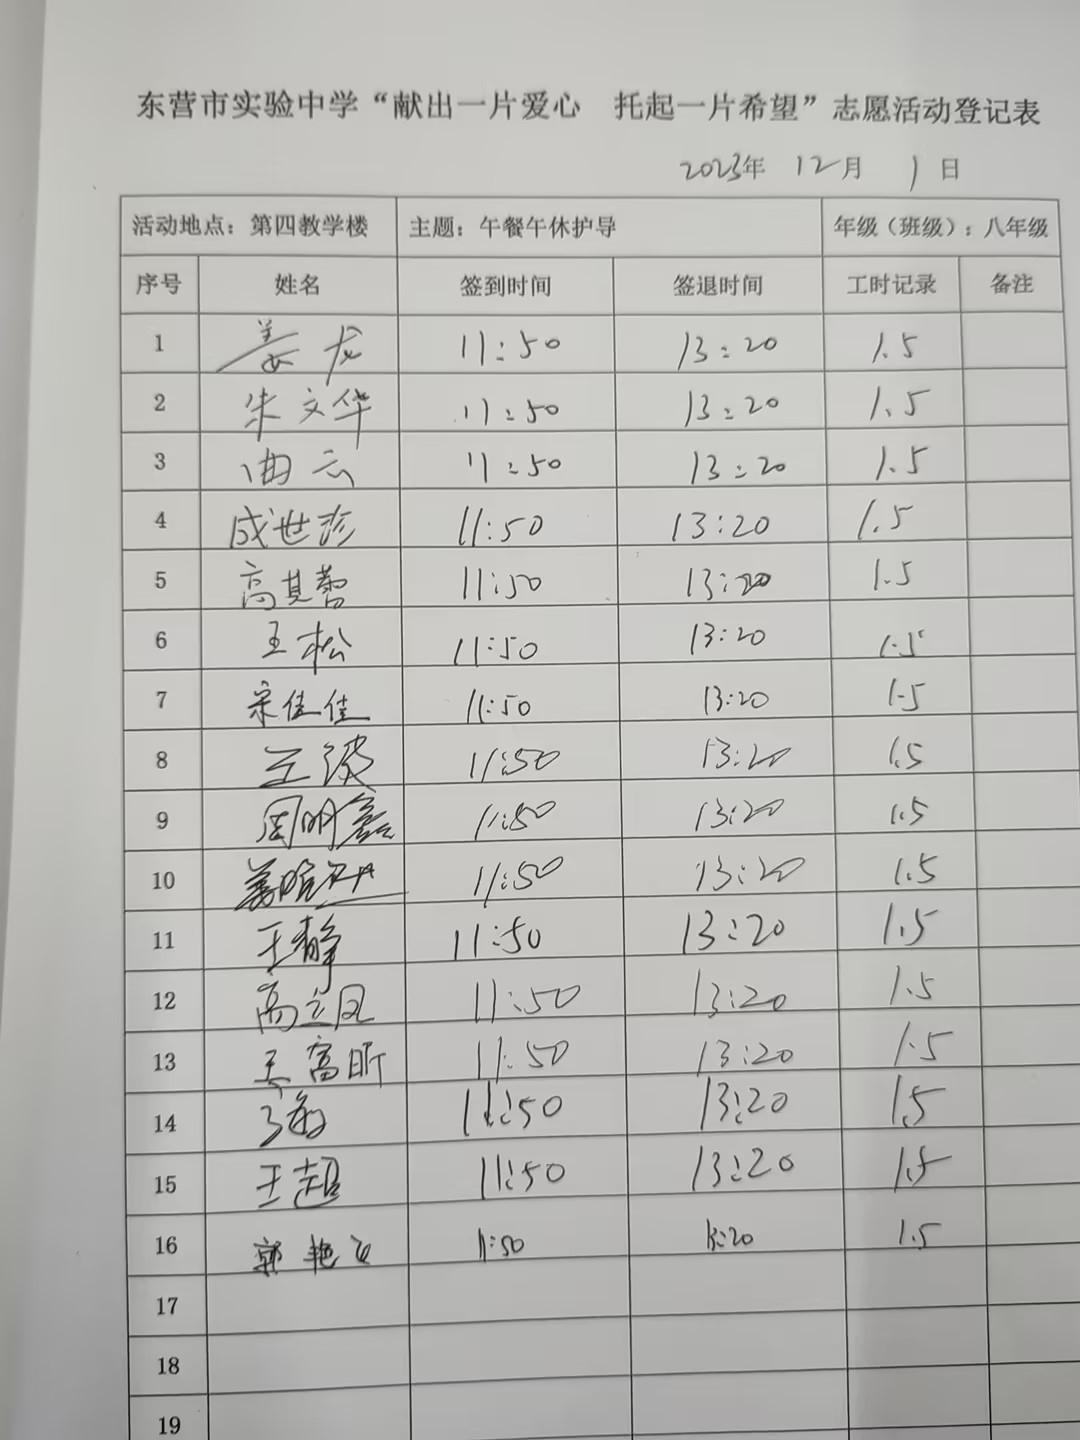 东营市实验中学“献出一片爱心 托起一片希望”志愿活动登记表
2023年 12月 1日
活动地点：第四教学楼 主题：午餐午休护导 年级（班级）：八年级
序号 姓名 签到时间 签退时间 工时记录 备注
1 姜龙 11:50 13:20 1.5
2 朱文华 11:50 13:20 1.5
3 曲云 11:50 13:20 1.5
4 成世珍 11:50 13:20 1.5
5 高其蕾 11:50 13:20 1.5
6 王松 11:50 13:20 1.5
7 宋佳佳 11:50 13:20 1.5
8 王波 11:50 13:20 1.5
9 周明鑫 11:50 13:20 1.5
10 11:50 13:20 1.5
11 王静 11:50 13:20 1.5
12 高立凤 11:50 13:20 1.5
13 王富昕 11:50 13:20 1.5
14 11:50 13:20 1.5
15 王超 11:50 13:20 1.5
16 郭艳飞 11:50 13:20 1.5
17
18
19